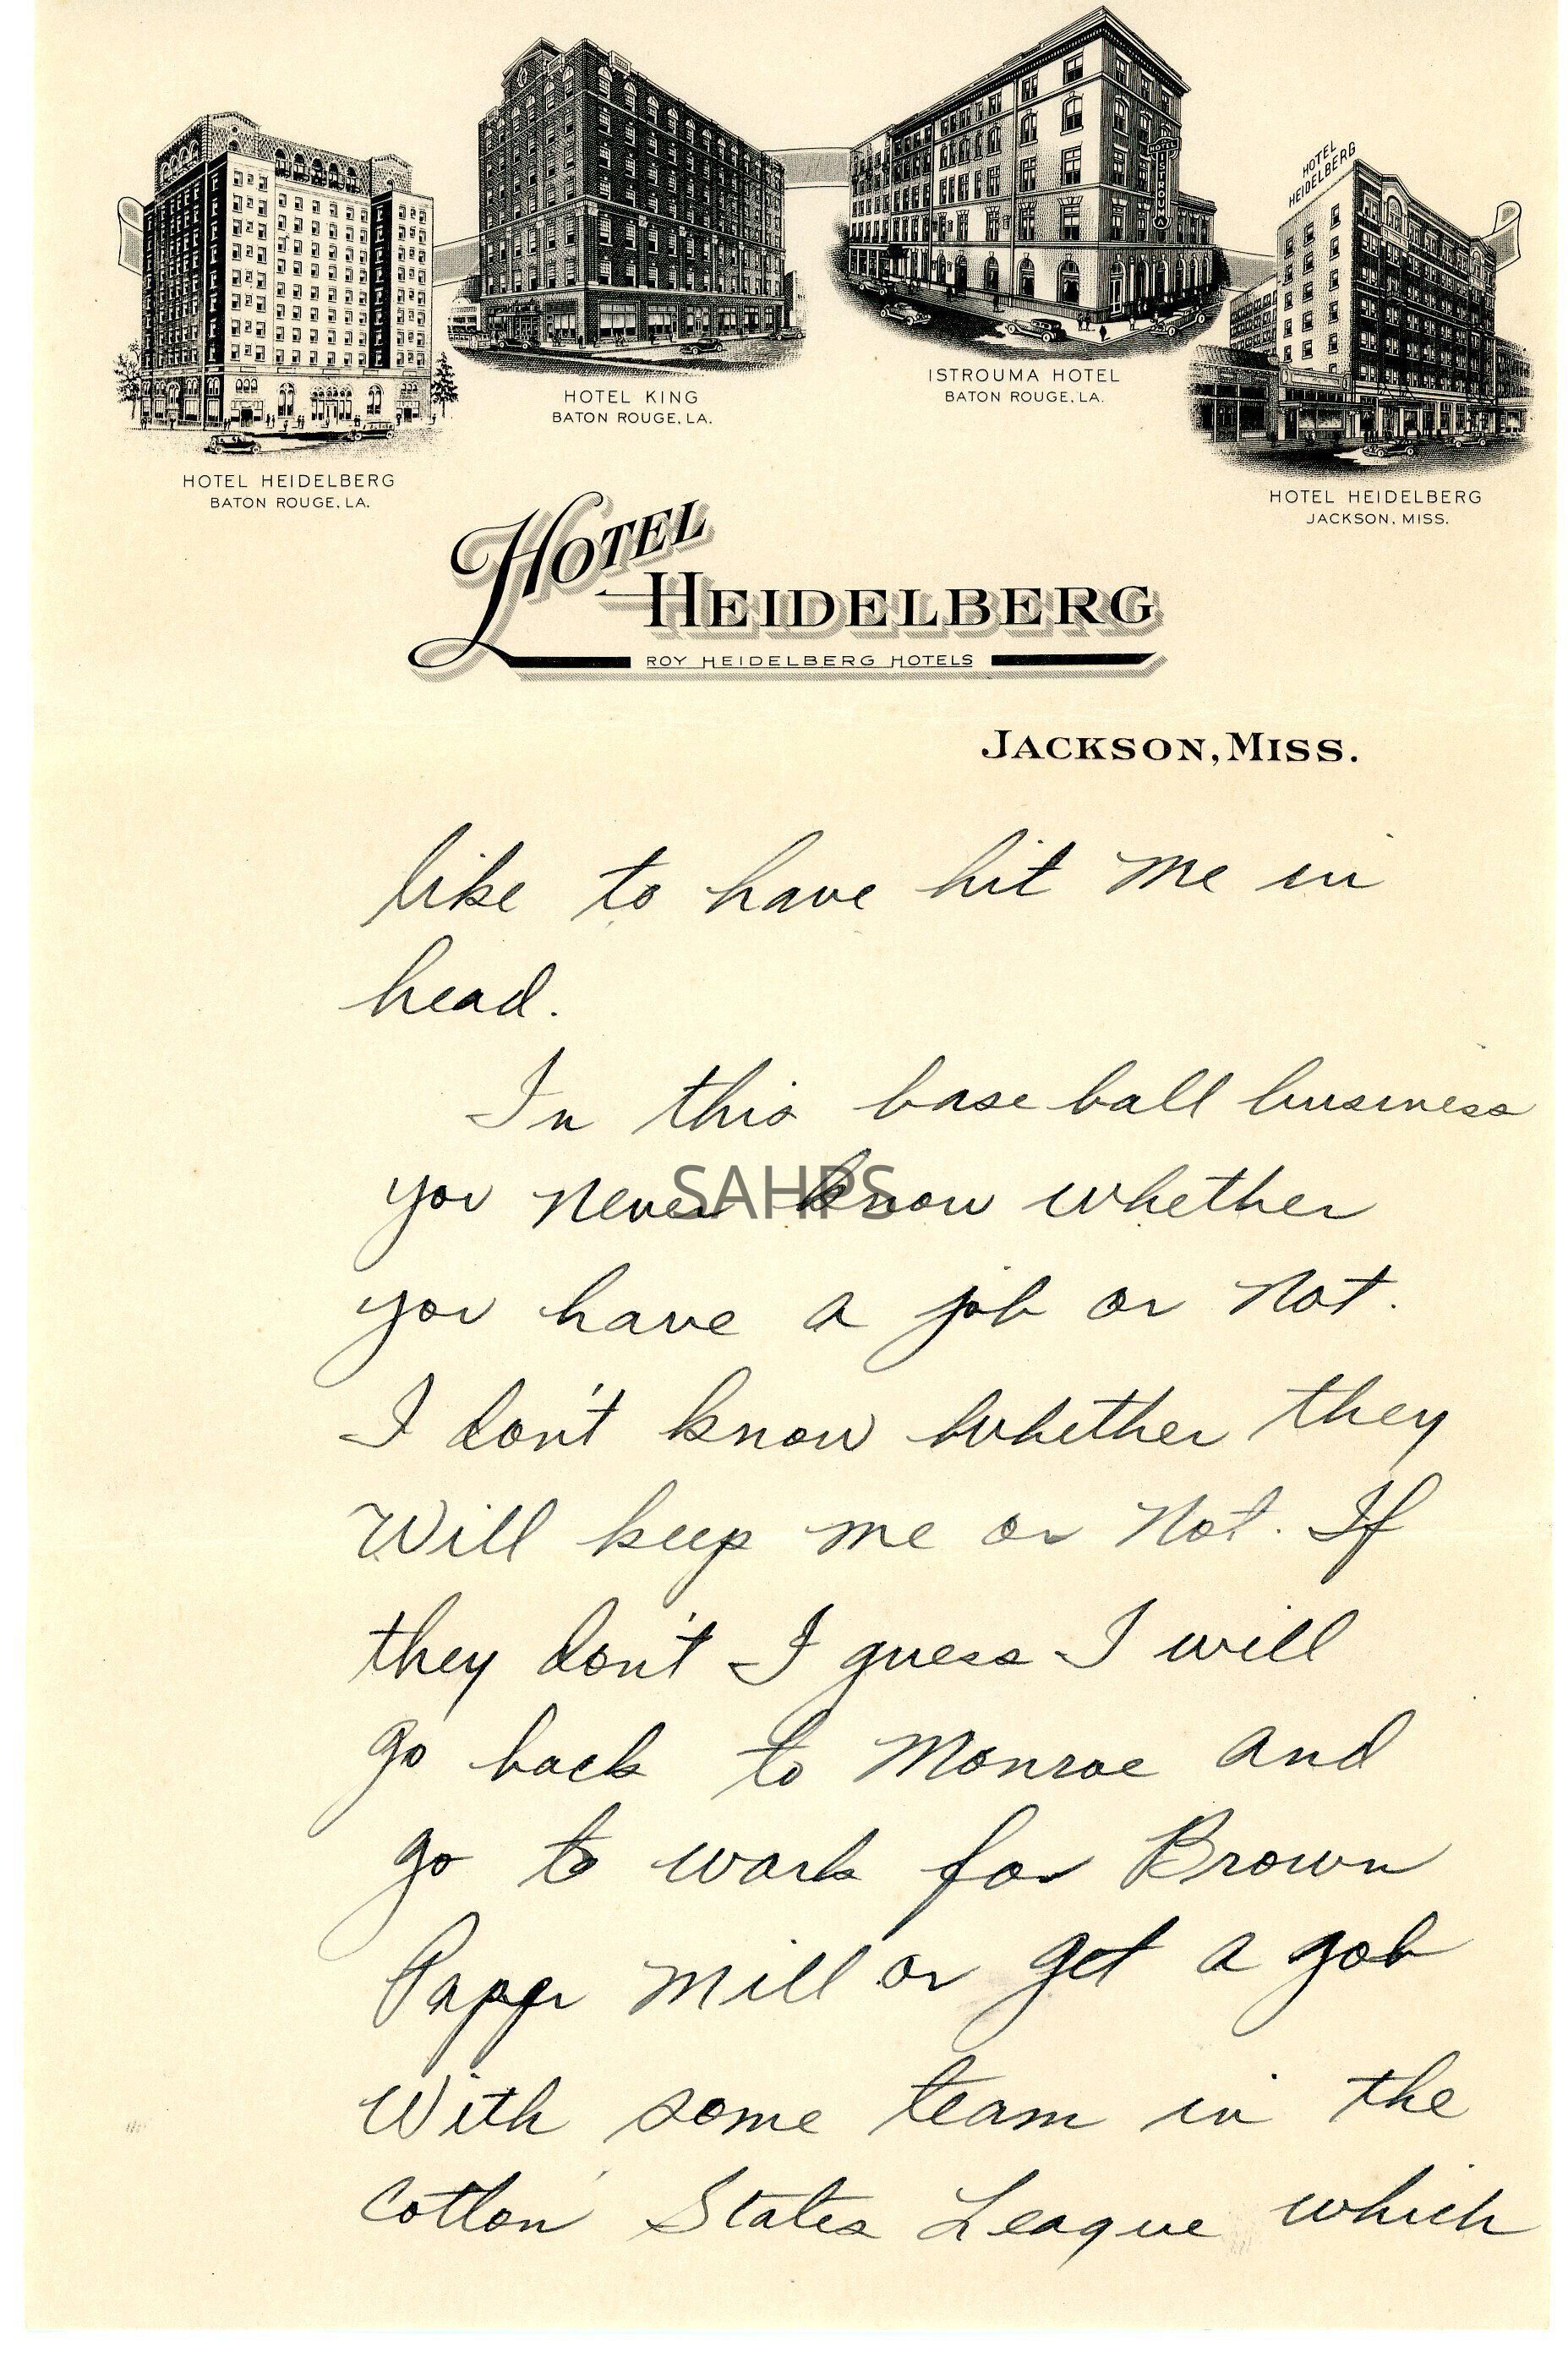 HOTEL
HEIDELBERG
HOTEL ISTROUMA
HOTEL KING
BATON ROUGE, LA.
ISTROUMA HOTEL
BATON ROUGE, LA.
HOTEL HEIDELBERG
BATON ROUGE, LA.
HOTEL HEIDELBERG
JACKSON, MISS.
HOTEL
HEIDELBERG
ROY HEIDELBERG HOTELS
JACKSON, MISS.
like to have hit me in
head.
In this base ball business
you never know whether
SAHPS
you have a job or not.
I don't know whether they
Will keep me or not. If
they don't I guess I will
go back to Monroe and
go to work for Brown
Paper Mill or get a gob
With some team in the
Cotton States League which